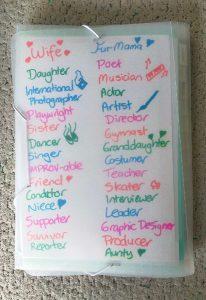 Wife
Daughter
International
Photographer
Playwright
Sister
Dancer
Singer
IMPROV-able
Friend
Condctor
Niece
Supporter
Survivor
Reporter
Fur-Mama
Poet
Musician
Actor
Artist
Director
Gymnast
Granddaughter
Costumer
Teacher
Skater
Interviewer
Leader
Graphic Designer
Producer
Aunty